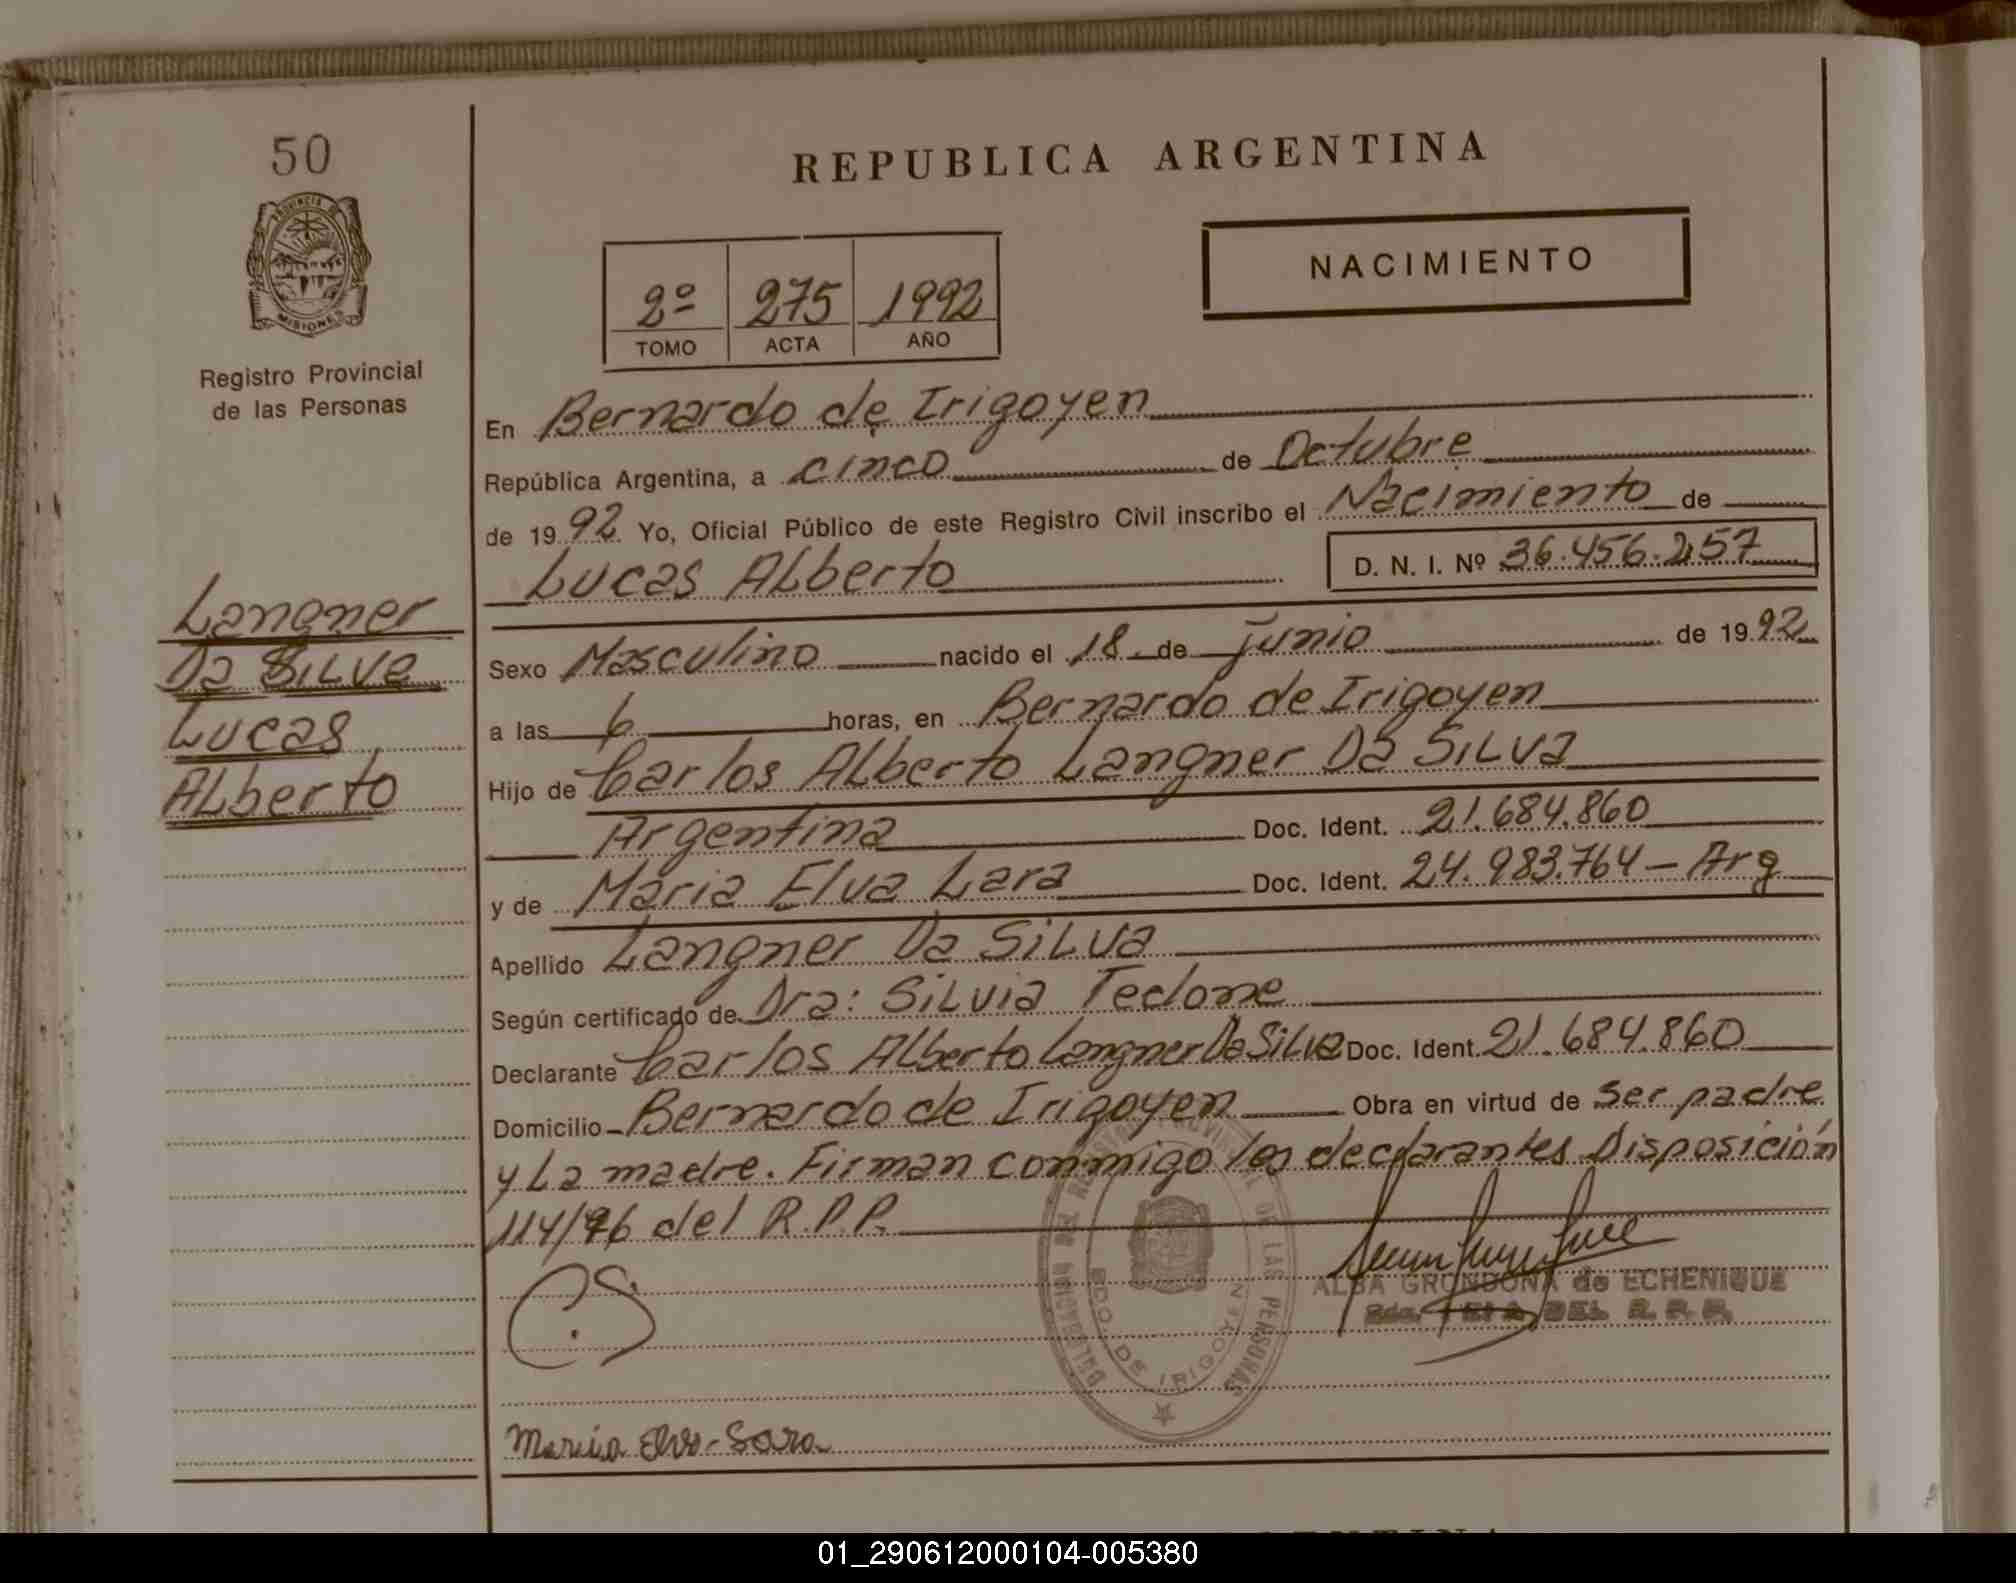 50
PROVINCIA DE
MISIONES
Registro Provincial
de las Personas
Langner
Da SILVa
Lucas
ALberto
REPUBLICA ARGENTINA
NACIMIENTO
2º 275 1992
TOMO ACTA AÑO
En Bernardo de Irigoyen
República Argentina, a cinco de Octubre
de 1992 Yo, Oficial Público de este Registro Civil inscribo el Nacimiento de
Lucas ALberto D. N. I. Nº 36.456.257
Sexo Masculino nacido el 18 de junio de 1992
a las 6 horas, en Bernardo de Irigoyen
Hijo de Carlos ALberto Langner Da SILVa
Argentina Doc. Ident. 21.684.860
y de Maria Elva Lara Doc. Ident. 24.983.764 - Arg
Apellido Langner Da SiLVa
Según certificado de Dra: SiLvia Tedone
Declarante Carlos ALberto Langner Da SiLva Doc. Ident. 21.684.860
Domicilio Bernardo de Irigoyen Obra en virtud de ser padre
y La madre. Firman conmigo los declarantes Disposición
114/96 del R.P.P.
DELEGACION DEL REGISTRO PROVINCIAL DE LAS PERSONAS
BDO. DE IRIGOYEN
ALBA GRONDONA de ECHENIQUE
DEL R. P. P.
Maria Elva Lara
01_290612000104-005380